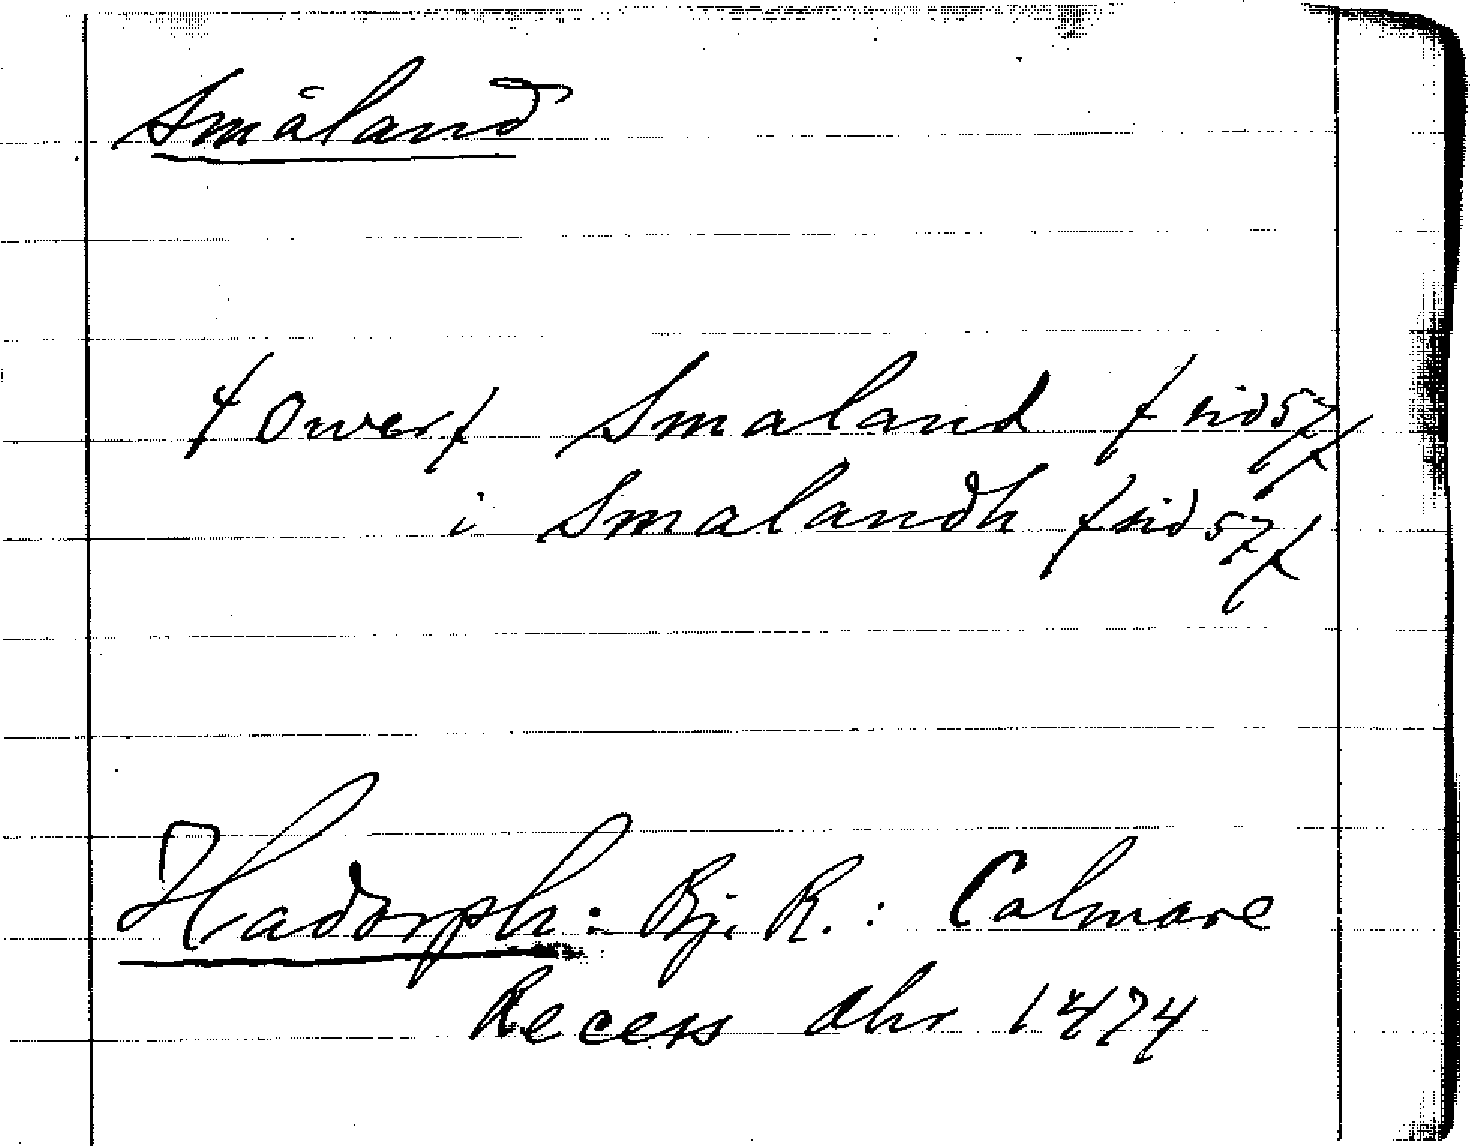 Småland
/Ower/ Smaland /sid 57/
i Smalandh /sid 57/
Hadorph: Bj. R.: Calmare
Recess Ahr 1474